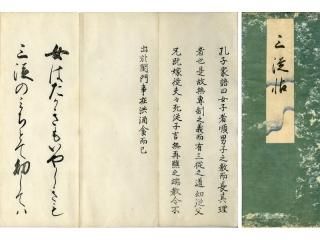 三従帖
孔子家語曰女子者順男子之教而長其理
者也是故無専制之義而有三従之道幼従父
兄既嫁従夫々死従子言無再醮之端教令不
出於閨門事在供酒食而已
女はたかきもいやしきも
三従のみちとて幼してハ